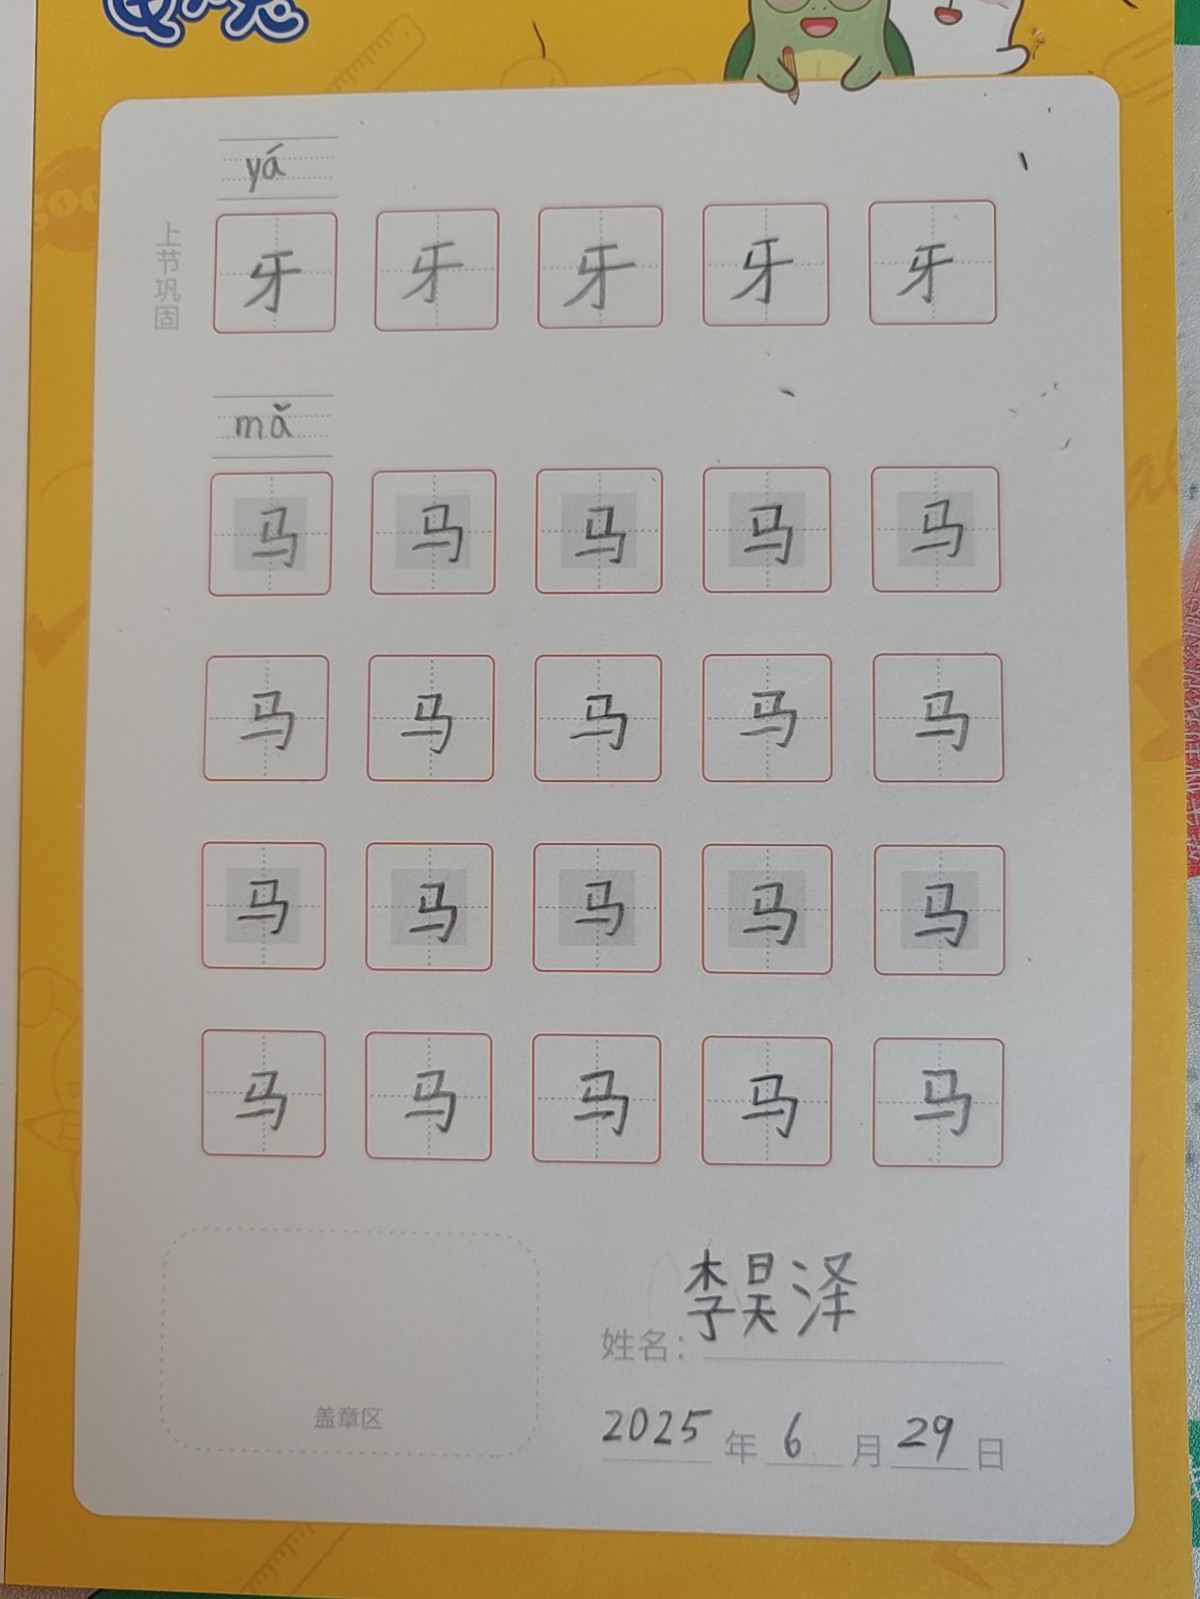 yá
上节巩固
牙 牙 牙 牙 牙
mǎ
马 马 马 马 马
马 马 马 马 马
马 马 马 马 马
马 马 马 马 马
李昊泽
姓名:
盖章区
2025 年 6 月 29 日